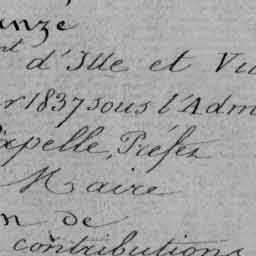 anze
nt d'Ille et Vi
r 1837 sous l'Adm
apelle, Préfet
Maire
n de
contributions